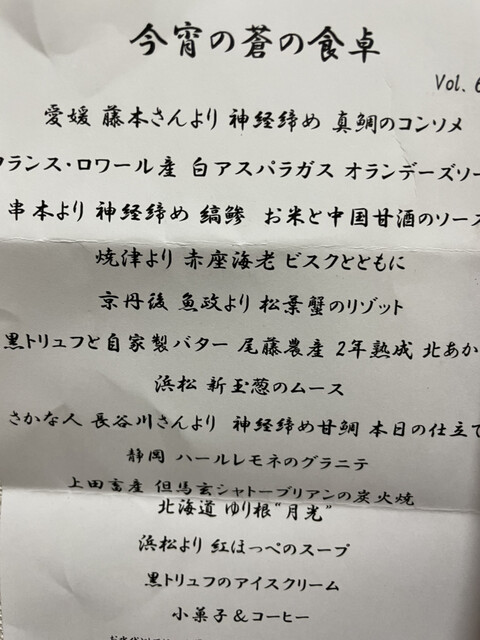 今宵の蒼の食卓
Vol. 6
愛媛 藤本さんより 神経締め 真鯛のコンソメ
フランス・ロワール産 白アスパラガス オランデーズソー
串本より 神経締め 縞鯵 お米と中国甘酒のソース
焼津より 赤座海老 ビスクとともに
京丹後 魚政より 松葉蟹のリゾット
黒トリュフと自家製バター 尾藤農産 2年熟成 北あか
浜松 新玉葱のムース
さかな人 長谷川さんより 神経締め甘鯛 本日の仕立て
静岡 ハールレモネのグラニテ
上田畜産 但馬玄シャトーブリアンの炭火焼
北海道 ゆり根"月光"
浜松より 紅ほっぺのスープ
黒トリュフのアイスクリーム
小菓子&コーヒー